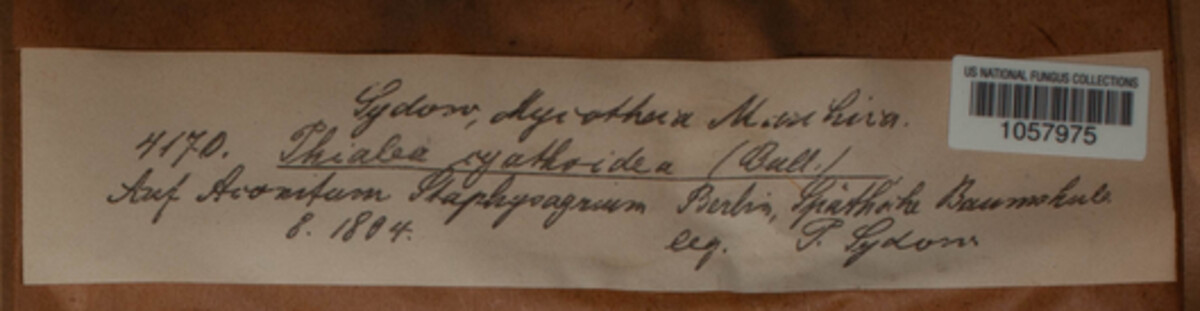 US NATIONAL FUNGUS COLLECTIONS
1057975
Sydow, Mycotheca Marchica.
4170. Phialea cyathoidea (Bull.)
Auf Aconitum Staphysagrium Berlin, Späthsche Baumschule.
8. 1894. leg. P. Sydow.